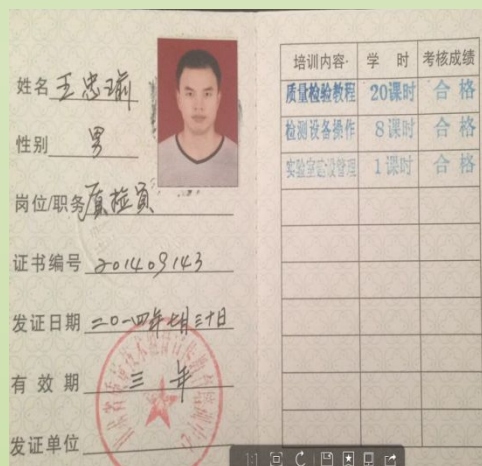 姓名 王忠瑜
性别 男
岗位/职务 质检员
证书编号 201409143
发证日期 二〇一四年七月三十日
有效期 三年
发证单位
培训内容 学时 考核成绩
质量检验教程 20课时 合格
检测设备操作 8课时 合格
实验室建设管理 1课时 合格
1:1